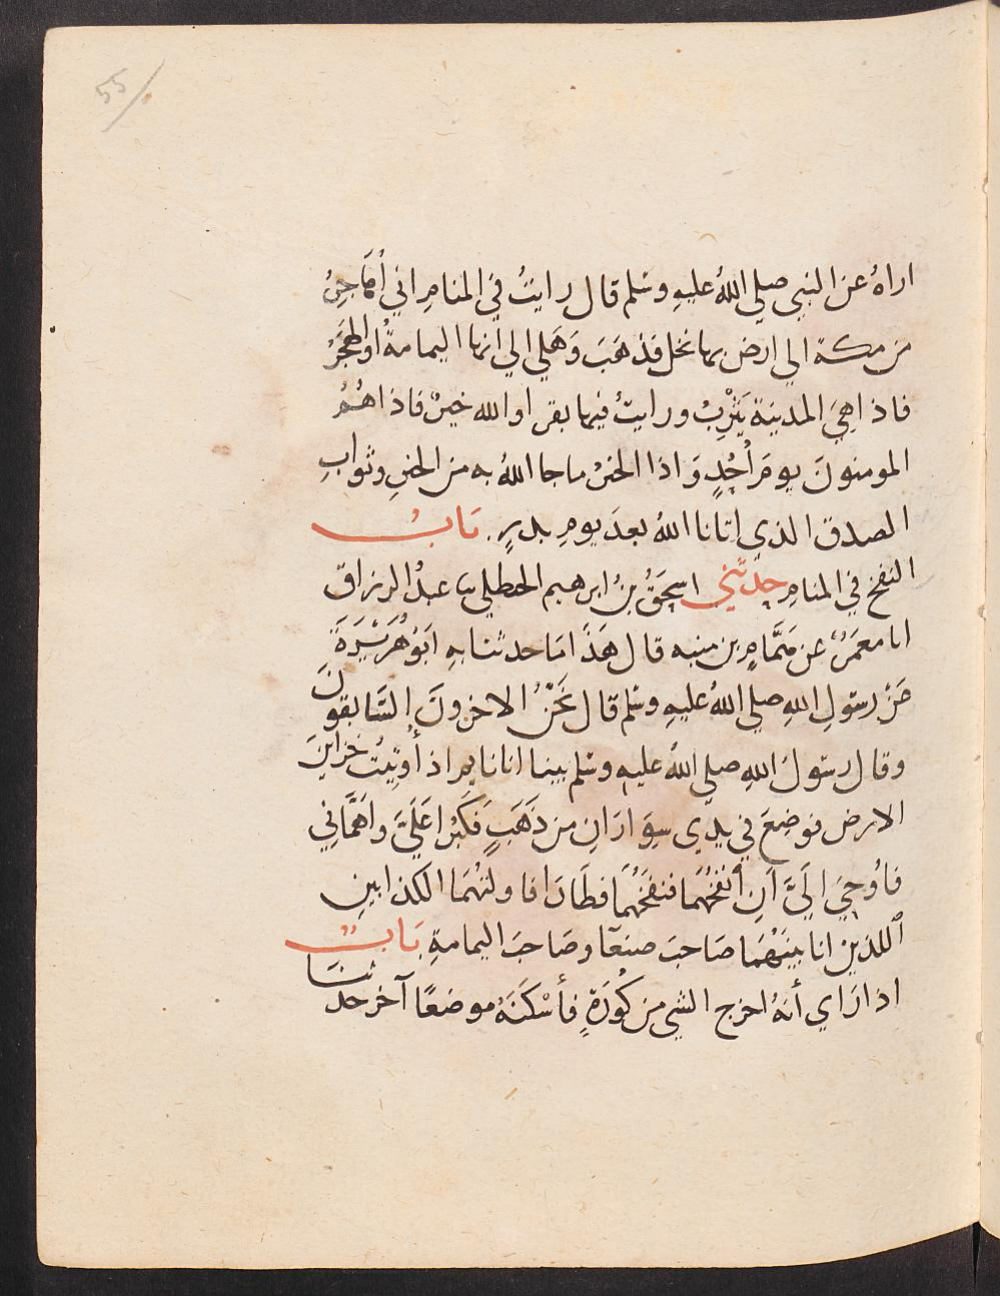 55
اراهُ عن النبي صلي اللهُ عليهِ وسلم قال رايتُ في المنامِ اني أهَاجِرُ
من مكة الي ارض بها نخل فذهَبَ وَهَلي الي انها اليمامةُ او الهجَرُ
فاذا هِيَ المدينة يَثْرِبُ ورايتُ فيها بقرا والله خيرٌ فاذا هُمُ
المومنونَ يومَ أُحُدٍ وَاذا الخيرُ ما جا اللهُ به من الخيرِ وثوابِ
الصدق الذي اتانا اللهُ بعدَ يومِ بدرٍ. بَابُ
النفخ في المنامِ حدّثني اسحَقُ بنُ ابرهيم الحنظلي ثنا عبدُ الرزاق
انا معمَرٌ عن همَّامِ بن منبه قال هَذَا مَا حدثنا بهِ ابَوُ هُرَيْرَةَ
عَنْ رسَولِ اللهِ صلي اللهُ عليهِ وسلم قال نَحْنُ الاخرونَ السَّابقونَ
وقال رسَولُ اللهِ صلي اللهُ عليهِ وسلم بينا انا نايم اذ أوتيتُ خزاينَ
الارض فوضِعَ في يدي سِوَارَانِ من ذَهَبٍ فَكَبُرَا عَلَيَّ واهَمَّاني
فاُوحِيَ الَيَّ اَنِ اُنفخْهُمَا فنفَخْتُهُمَا فطَارَا فاولتهُمَا الكذابينِ
اللذين انا بينَهُمَا صَاحبَ صنعَا وصَاحبَ اليمامةِ بَابٌ
اذا رَاي أنهُ اخرج الشي من كُورَةٍ فأسْكَنَهُ موضعًا آخر حدثنَا